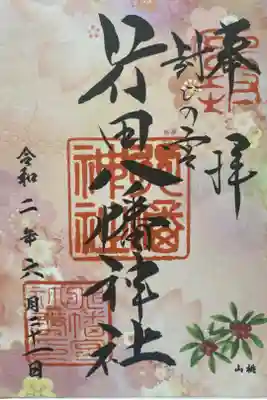 奉拝
封じの宮
行田八幡神社
令和二年六月二十一日
山桃